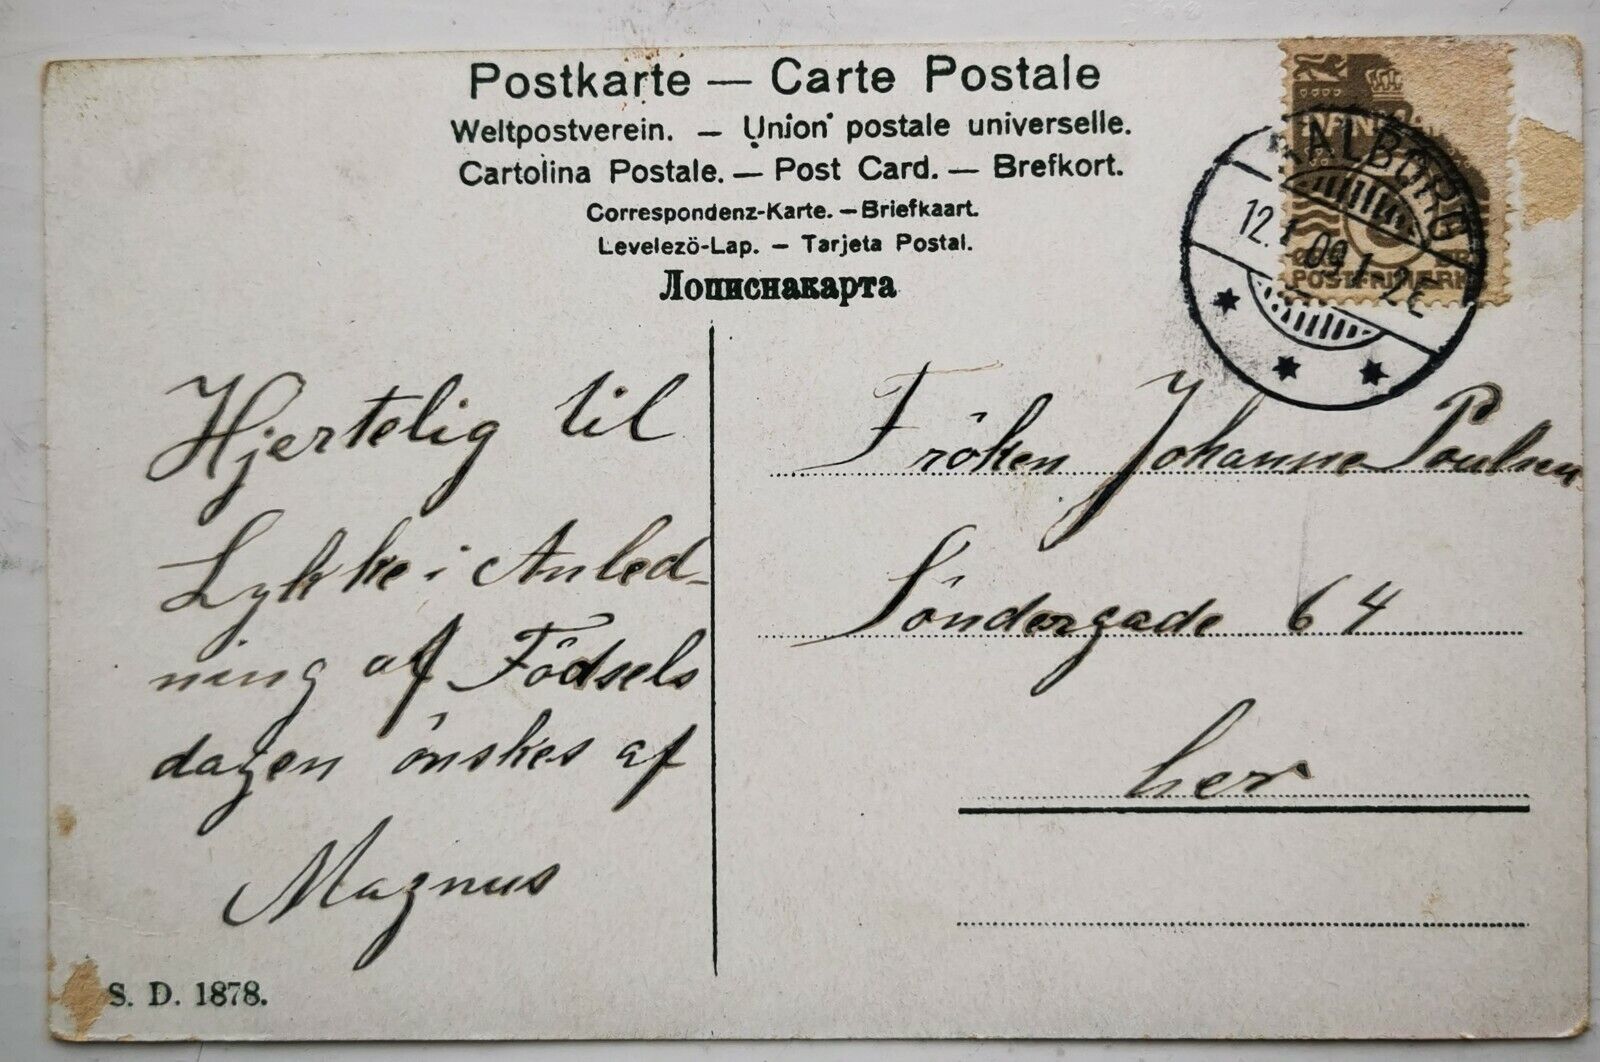 Postkarte — Carte Postale
Weltpostverein. — Union postale universelle.
Cartolina Postale. — Post Card. — Brefkort.
Correspondenz-Karte. — Briefkaart.
Levelező-Lap. — Tarjeta Postal.
Лописнакарта
AALBORG
12.1.09 1-2E
POSTFRIMÆRK
Hjertelig til
Lykke i Anled-
ning af Födsels
dagen önskes af
Magnus
S. D. 1878.
Fröken Johanne Poulsen
Söndergade 64
her